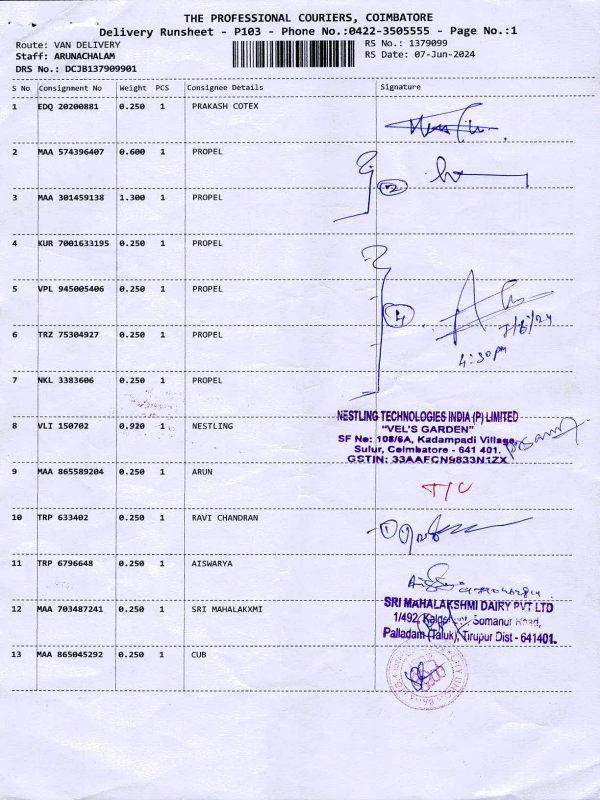 THE PROFESSIONAL COURIERS, COIMBATORE
Delivery Runsheet - P103 - Phone No.:0422-3505555 - Page No.:1
Route: VAN DELIVERY RS No.: 1379099
Staff: ARUNACHALAM RS Date: 07-Jun-2024
DRS No.: DCJB137909901
S No Consignment No Weight PCS Consignee Details Signature
1 EDQ 20200881 0.250 1 PRAKASH COTEX
2 MAA 574396407 0.600 1 PROPEL
2
3 MAA 301459138 1.300 1 PROPEL
4 KUR 7001633195 0.250 1 PROPEL
5 VPL 945005406 0.250 1 PROPEL
4
7/6/24
6 TRZ 75304927 0.250 1 PROPEL
4:30pm
7 NKL 3383606 0.250 1 PROPEL
NESTLING TECHNOLOGIES INDIA (P) LIMITED
8 VLI 150702 0.920 1 NESTLING
"VEL'S GARDEN"
SF No: 108/6A, Kadampadi Village,
Sulur, Coimbatore - 641 401.
GSTIN: 33AAFCN9833N1ZX
9 MAA 865589204 0.250 1 ARUN
T/C
10 TRP 633402 0.250 1 RAVI CHANDRAN
11 TRP 6796648 0.250 1 AISWARYA
12 MAA 703487241 0.250 1 SRI MAHALAKXMI
SRI MAHALAKSHMI DAIRY PVT LTD
1/492, Somanur Road,
Palladam (Taluk), Tirupur Dist - 641401.
13 MAA 865045292 0.250 1 CUB